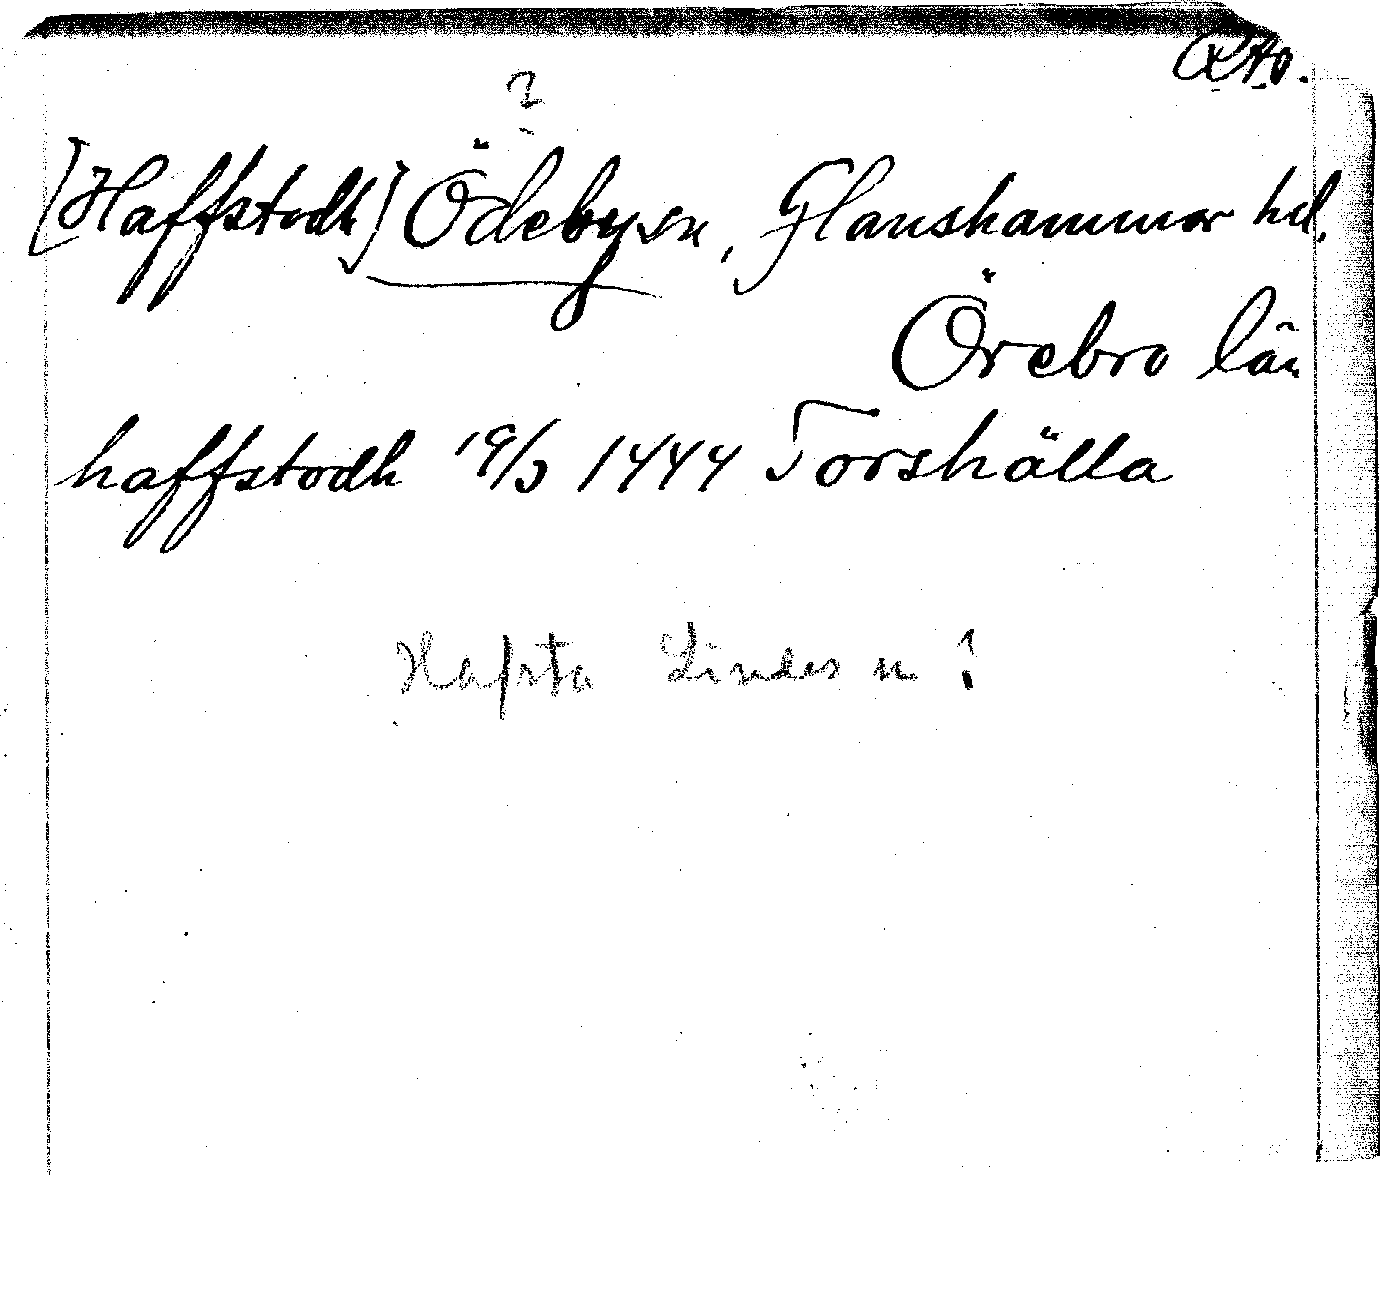 RAo.
?
[Haffstodh] Ödeby sn, Glanshammar hd,
Örebro län
haffstodh 19/3 1444 Torshälla
Hafsta Lindes sn?